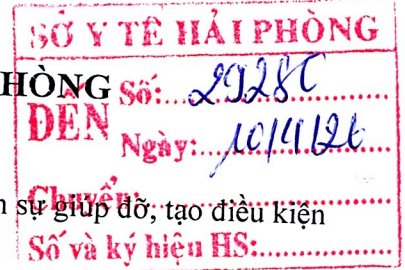 SỞ Y TẾ HẢI PHÒNG
HÒNG
ĐẾN
Số:
Ngày:
Chuyển:
sự giúp đỡ, tạo điều kiện
Số và ký hiệu HS: